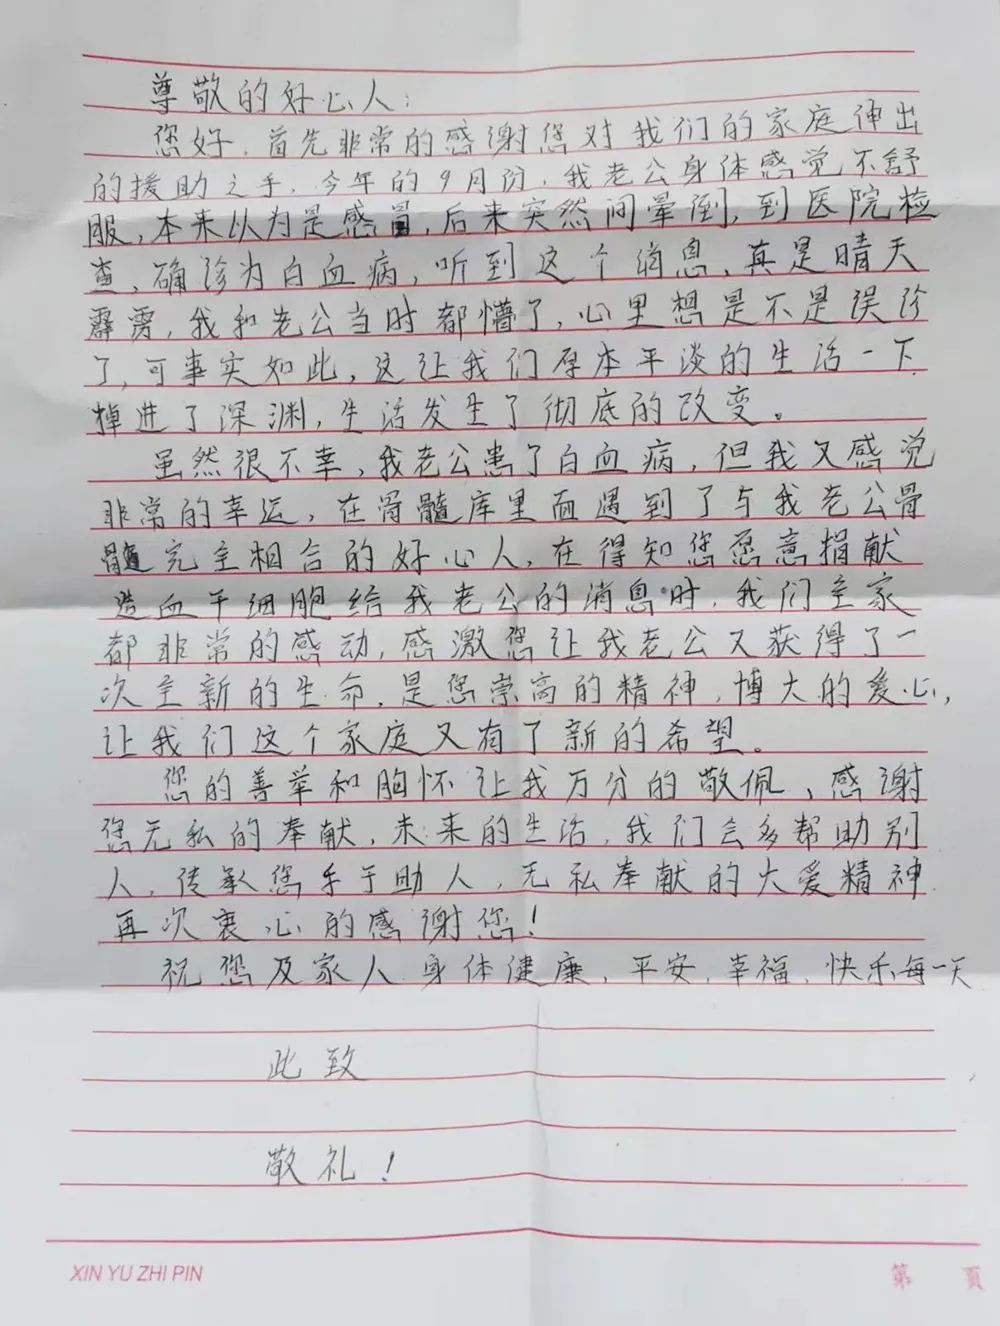 尊敬的好心人：
您好，首先非常的感谢您对我们的家庭伸出
的援助之手，今年的9月份，我老公身体感觉不舒
服，本来以为是感冒，后来突然间晕倒，到医院检
查，确诊为白血病，听到这个消息，真是晴天
霹雳，我和老公当时都懵了，心里想是不是误诊
了，可事实如此，这让我们原本平淡的生活一下
掉进了深渊，生活发生了彻底的改变。
虽然很不幸，我老公患了白血病，但我又感觉
非常的幸运，在骨髓库里面遇到了与我老公骨
髓完全相合的好心人，在得知您愿意捐献
造血干细胞给我老公的消息时，我们全家
都非常的感动，感激您让我老公又获得了一
次全新的生命，是您崇高的精神，博大的爱心，
让我们这个家庭又有了新的希望。
您的善举和胸怀让我万分的敬佩、感谢
您无私的奉献，未来的生活，我们会多帮助别
人，传承您乐于助人，无私奉献的大爱精神
再次衷心的感谢您！
祝您及家人身体健康，平安，幸福，快乐每一天
此致
敬礼！
XIN YU ZHI PIN
第 页